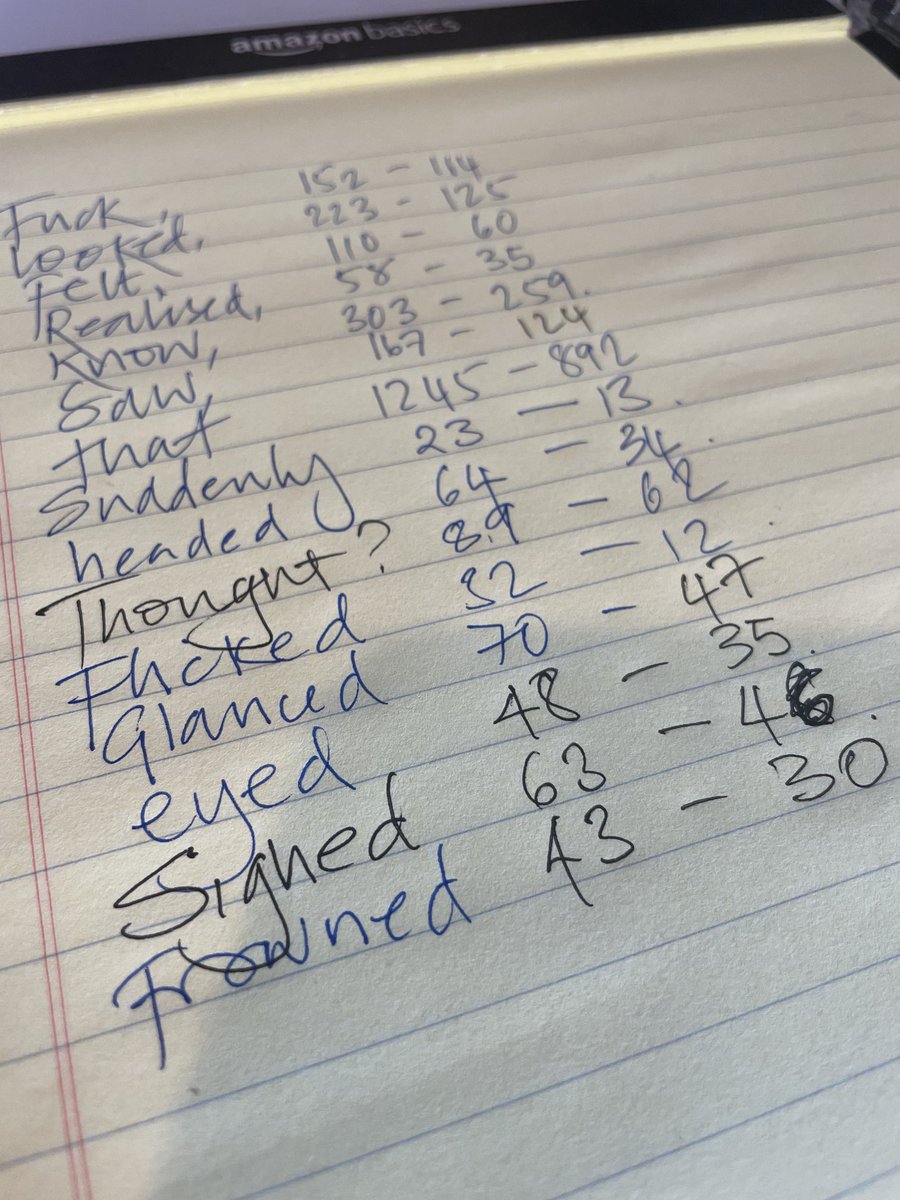 amazon basics
Fuck, 152 - 114
Looked, 223 - 125
Felt, 110 - 60
Realised, 58 - 35
Know, 303 - 259.
Saw, 167 - 124
that 1245 - 892
Suddenly 23 - 13.
headed 64 - 34.
Thought? 89 - 62
Flicked 32 - 12.
Glanced 70 - 47
eyed 48 - 35.
Sighed 63 - 46.
Frowned 43 - 30